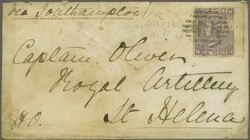 via Southampton
Captain Oliver
Royal Artillery
St Helena